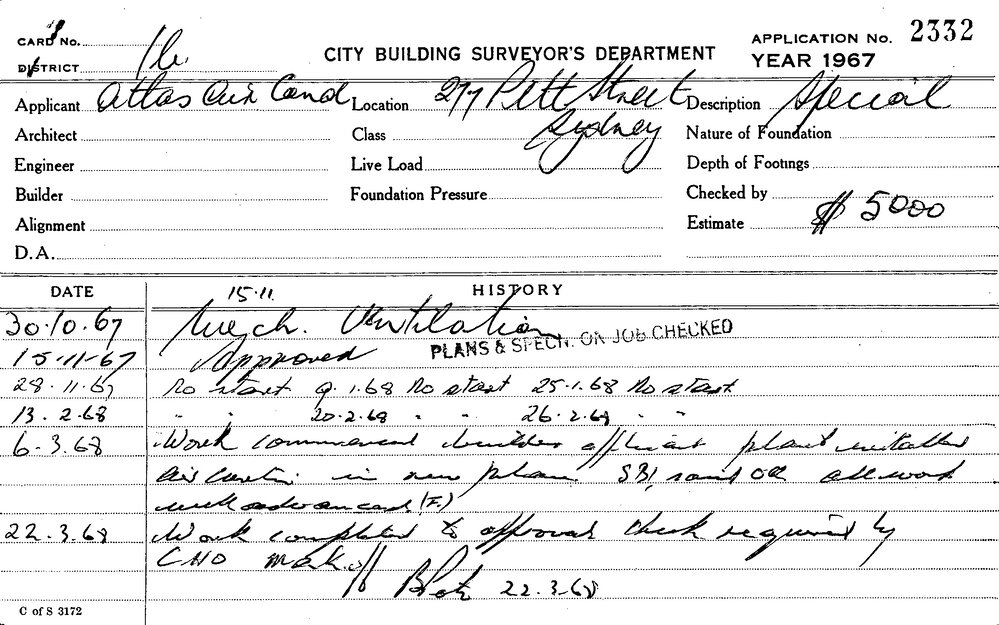 CARD No.
DISTRICT 1b.
CITY BUILDING SURVEYOR'S DEPARTMENT
APPLICATION No. 2332
YEAR 1967
Applicant Atlas Air Cond Location 277 Pitt Street Sydney Description Special
Architect Class Nature of Foundation
Engineer Live Load Depth of Footings
Builder Foundation Pressure Checked by
Alignment Estimate $ 5000
D.A.
DATE 15.11. HISTORY
30.10.67 Mech. Ventilation
PLANS & SPECN. ON JOB CHECKED
15-11-67 Approved
28.11.67 No start 9.1.68 No start 25.1.68 No start
13.2.68 " " 20.2.68 " " 26.2.68 " "
6.3.68 Work commenced builder plant
in new all work
well advanced (F.)
22.3.68 Work completed to approval check required by
CHO
22.3.68
C of S 3172